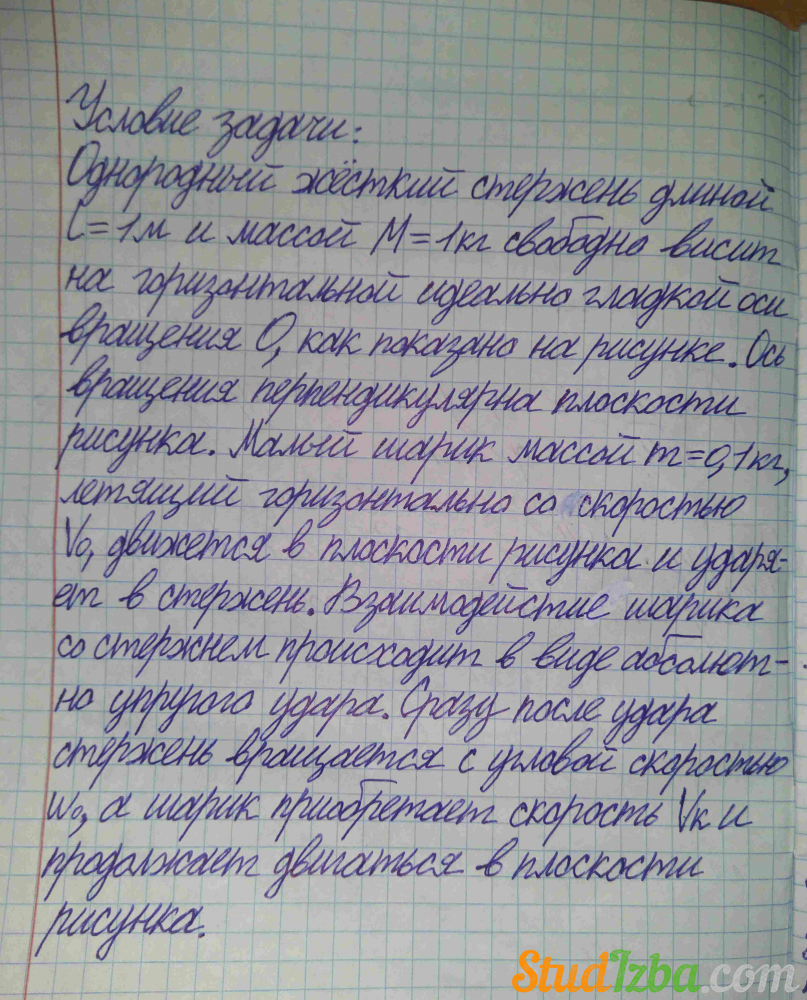 Условие задачи:
Однородный жёсткий стержень длиной
l=1м и массой M=1кг свободно висит
на горизонтальной идеально гладкой оси
вращения O, как показано на рисунке. Ось
вращения перпендикулярна плоскости
рисунка. Малый шарик массой m=0,1кг,
летящий горизонтально со скоростью
V₀, движется в плоскости рисунка и ударя-
ет в стержень. Взаимодействие шарика
со стержнем происходит в виде абсолют-
но упругого удара. Сразу после удара
стержень вращается с угловой скоростью
ω₀, а шарик приобретает скорость Vк и
продолжает двигаться в плоскости
рисунка.
StudIzba.com